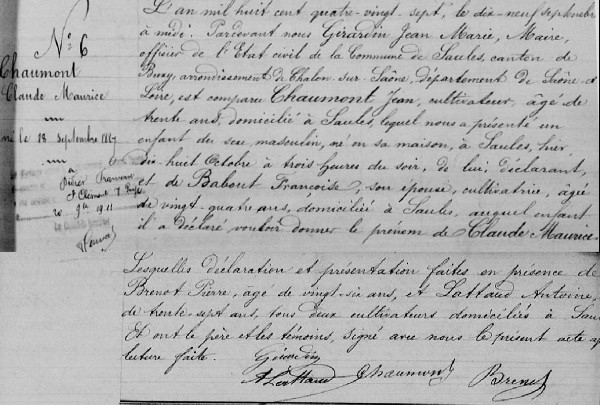 N° 6
Chaumont
Claude Maurice
né le 18 Septembre 1887
à
et Clément
L'an mil huit cent quatre-vingt-sept, le dix-neuf septembre
à midi. Pardevant nous Girardin Jean Marie, Maire,
officier de l'Etat civil de la Commune de Saules, canton de
Buxy, arrondissement de Chalon-sur-Saône, département de Saône-et-
Loire, est comparu Chaumont Jean, cultivateur, âgé de
trente ans, domicilié à Saules, lequel nous a présenté un
enfant du sexe masculin, né en sa maison, à Saules, hier
dix-huit Octobre à trois heures du soir, de lui, déclarant,
et de Babout Françoise, son épouse, cultivatrice, âgée
de vingt-quatre ans, domiciliée à Saules, auquel enfant
il a déclaré vouloir donner le prénom de Claude Maurice.
Lesquelles déclaration et présentation faites en présence de
Brenot Pierre, âgé de vingt-six ans, et Lattaud Antoine,
de trente-sept ans, tous deux cultivateurs domiciliés à Sau
Et ont le père et les témoins, signé avec nous le présent acte ap
lecture faite. Girardin
A Lattaud Chaumont Brenot